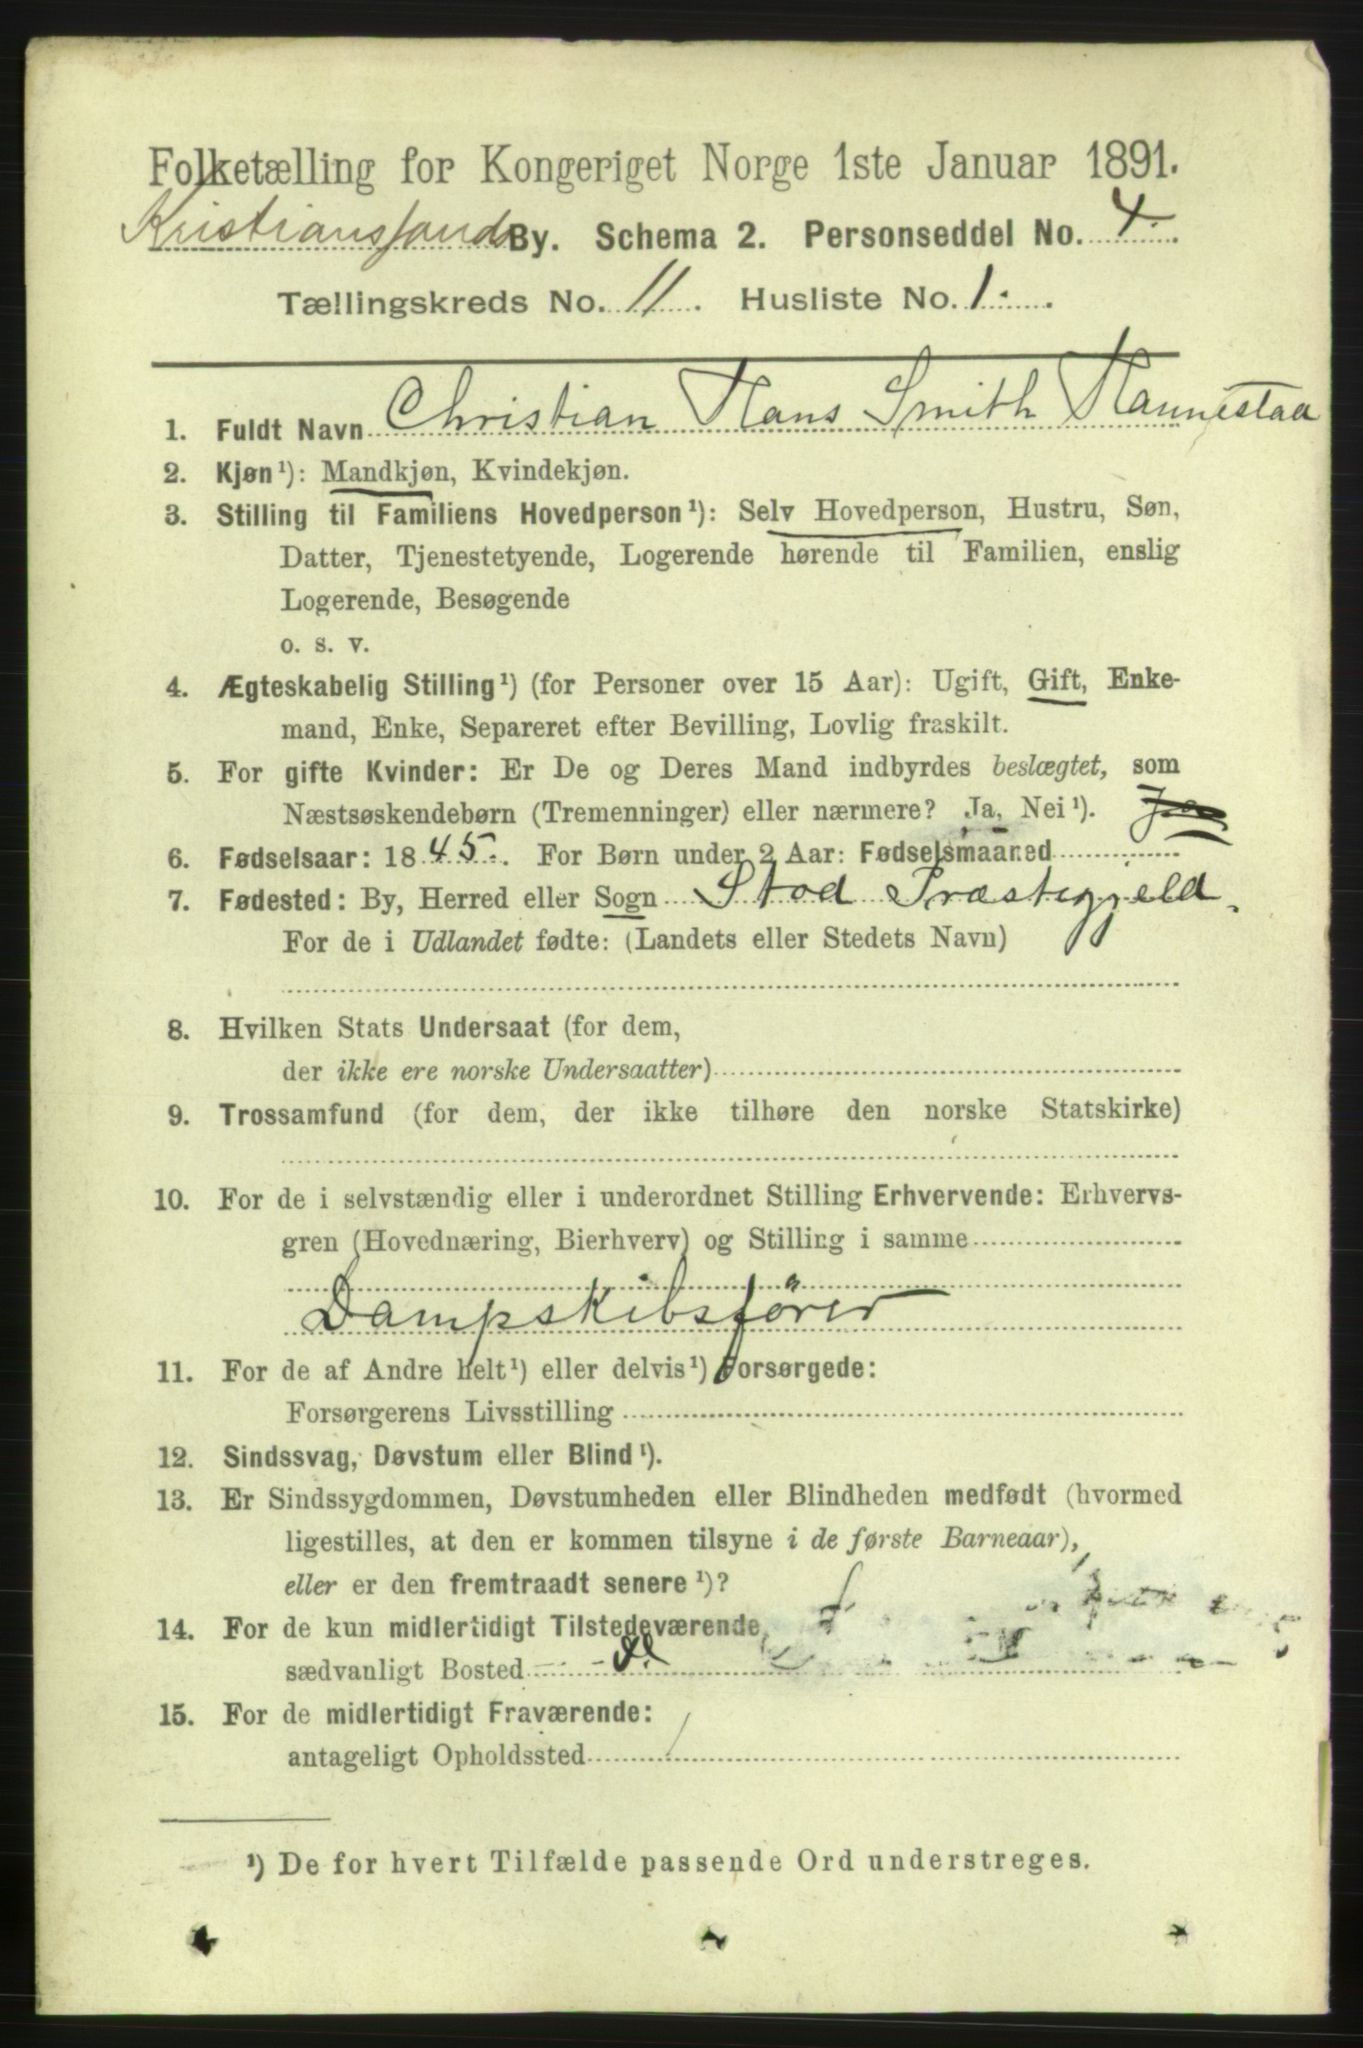 Folketælling for Kongeriget Norge 1ste Januar 1891.
Kristianssands By. Schema 2. Personseddel No. 4.
Tællingskreds No. 11. Husliste No. 1.
1. Fuldt Navn Christian Hans Smith Hannestaa
2. Kjøn¹): Mandkjøn, Kvindekjøn.
3. Stilling til Familiens Hovedperson¹): Selv Hovedperson, Hustru, Søn,
Datter, Tjenestetyende, Logerende hørende til Familien, enslig
Logerende, Besøgende
o. s. v.
4. Ægteskabelig Stilling¹) (for Personer over 15 Aar): Ugift, Gift, Enke-
mand, Enke, Separeret efter Bevilling, Lovlig fraskilt.
5. For gifte Kvinder: Er De og Deres Mand indbyrdes beslægtet, som
Næstsøskendebørn (Tremenninger) eller nærmere? Ja, Nei¹).
6. Fødselsaar: 1845. For Børn under 2 Aar: Fødselsmaaned
7. Fødested: By, Herred eller Sogn Stod Præstegjeld.
For de i Udlandet fødte: (Landets eller Stedets Navn)
8. Hvilken Stats Undersaat (for dem,
der ikke ere norske Undersaatter)
9. Trossamfund (for dem, der ikke tilhøre den norske Statskirke)
10. For de i selvstændig eller i underordnet Stilling Erhvervende: Erhvervs-
gren (Hovednæring, Bierhverv) og Stilling i samme
Dampskibsfører
11. For de af Andre helt¹) eller delvis¹) Forsørgede:
Forsørgerens Livsstilling
12. Sindssvag, Døvstum eller Blind¹).
13. Er Sindssygdommen, Døvstumheden eller Blindheden medfødt (hvormed
ligestilles, at den er kommen tilsyne i de første Barneaar),
eller er den fremtraadt senere¹)?
14. For de kun midlertidigt Tilstedeværende
sædvanligt Bosted
15. For de midlertidigt Fraværende:
antageligt Opholdssted
¹) De for hvert Tilfælde passende Ord understreges.